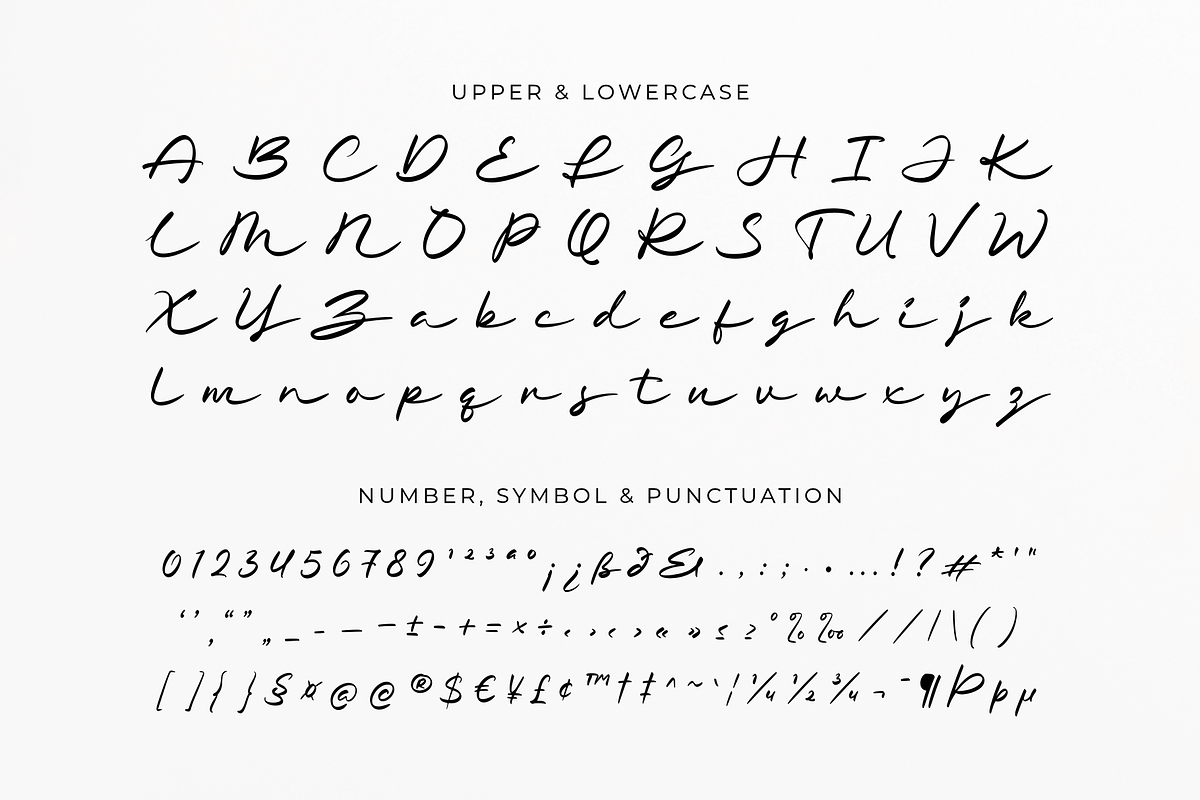 UPPER & LOWERCASE
A B C D E F G H I J K
L M N O P Q R S T U V W
X Y Z a b c d e f g h i j k
l m n o p q r s t u v w x y z
NUMBER, SYMBOL & PUNCTUATION
0 1 2 3 4 5 6 7 8 9 ¹ ² ³ ª º ¡ ¿ ß ∂ & . , : ; · • … ! ? # * ' "
‘ ’ ‚ “ ” „ _ - — – ± − + = × ÷ < > ‹ › « » ≤ ≥ ° % ‰ / ⁄ | \ ( )
[ ] { } § ¤ @ @ ® $ € ¥ £ ¢ ™ † ‡ ^ ~ ` ¦ ¼ ½ ¾ ¬ ¯ ¶ Þ þ µ